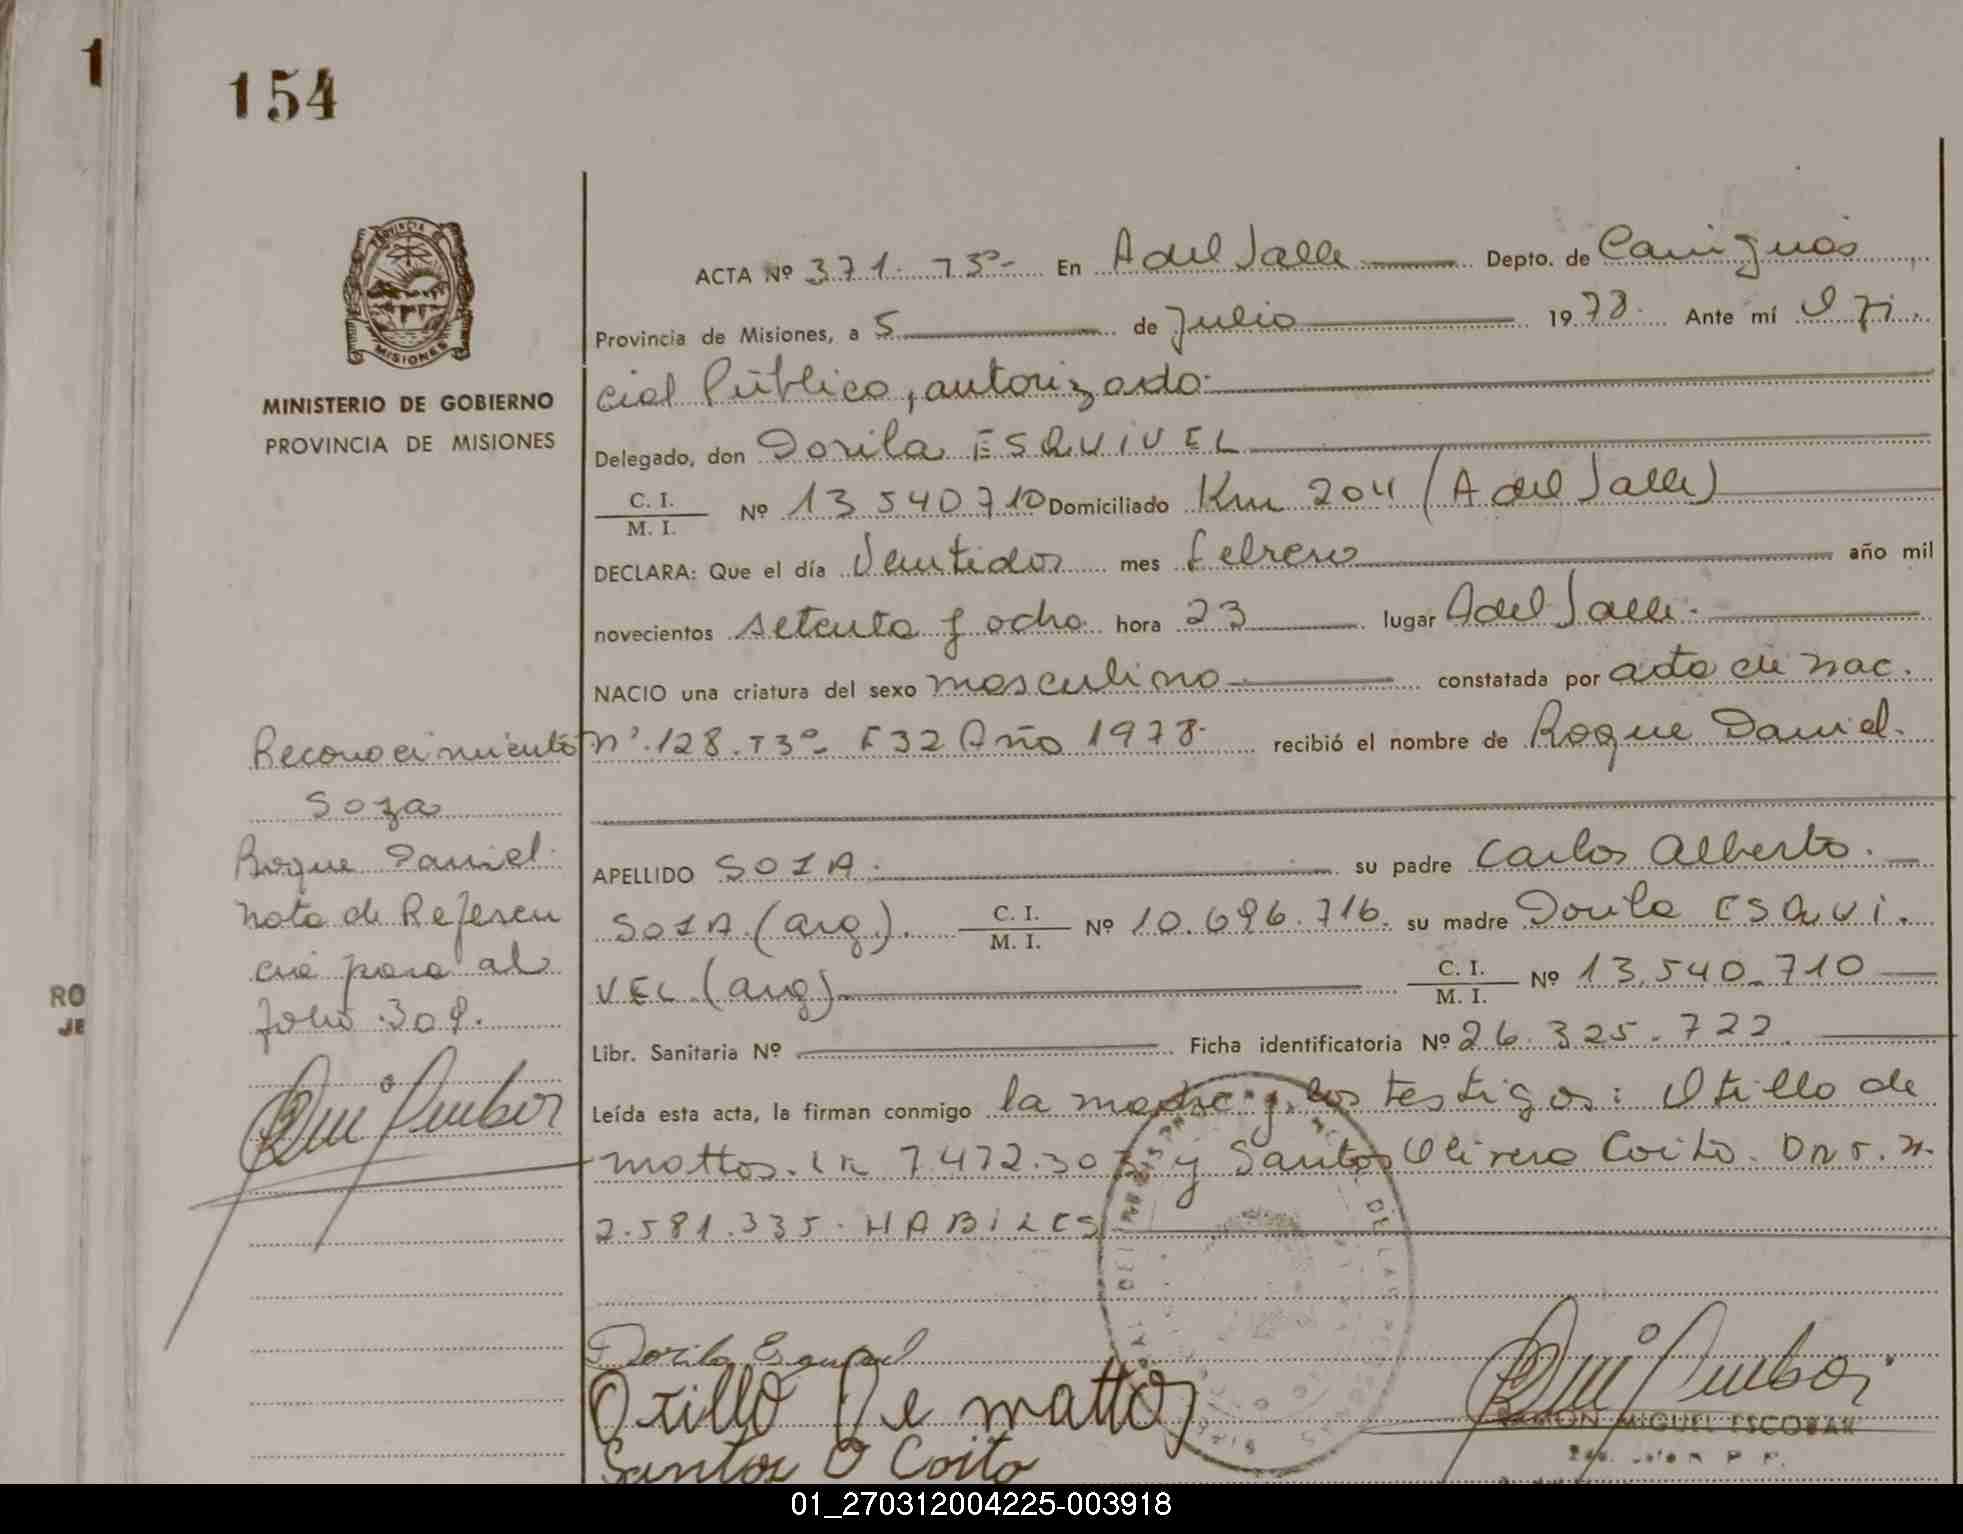 1
154
PROVINCIA DE
MISIONES
MINISTERIO DE GOBIERNO
PROVINCIA DE MISIONES
ACTA Nº 371. T3º- En A del Valle Depto. de Cainguás
Provincia de Misiones, a 5 de Julio 1978. Ante mí Ofi.
cial Público, autorizado.
Delegado, don Dorila ESQUIVEL
C. I.
M. I. Nº 13540710 Domiciliado Km 204 (A del Valle)
DECLARA: Que el día Veintidos mes febrero año mil
novecientos setenta y ocho hora 23 lugar A del Valle.
NACIO una criatura del sexo masculino constatada por acta de nac.
nº.128.T3º- F32 Año 1978. recibió el nombre de Roque Daniel.
APELLIDO SOZA. su padre Carlos Alberto.
SOZA (arg). C. I.
M. I. Nº 10.696.716. su madre Dorila ESQUI.
VEL (arg) C. I.
M. I. Nº 13.540.710
Libr. Sanitaria Nº Ficha identificatoria Nº 26.325.722
Leída esta acta, la firman conmigo la madre y los testigos: Otillo de
mattos. 7.472.30 y Santos Olivera Coito. n.
2.581.335. HABILES
Reconocimiento
Soza
Roque Daniel.
nota de Referen
cia para al
folio 308.
RO
JE
Dorila Esquivel
Otillo De mattos
Santos O Coito
RAMON MIGUEL ESCOBAR
01_270312004225-003918